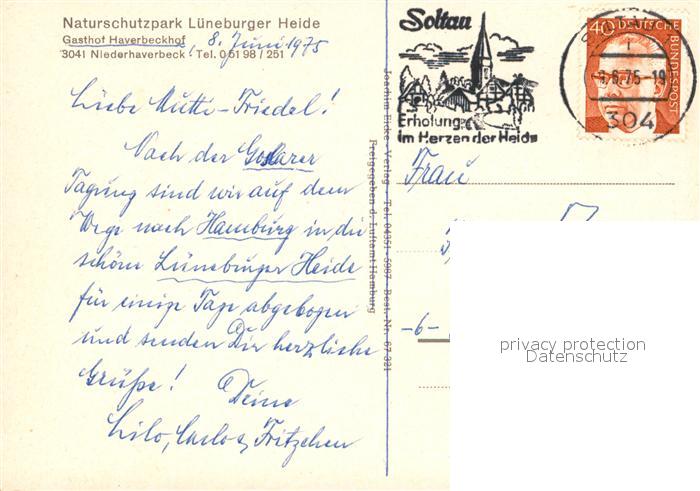 Naturschutzpark Lüneburger Heide
Gasthof Haverbeckhof, 8. Juni 1975
3041 Niederhaverbeck · Tel. 0 51 98 / 251
Liebe Mutti-Friedel!
Nach der Goslarer
Tagung sind wir auf dem
Wege nach Hamburg in die
schöne Lüneburger Heide
für einige Tage abgebogen
und senden Dir herzliche
Grüße! Deine
Lilo, Carlos, Fritzchen
Joachim Eicke - Verlag · Tel. 04351 - 5987 Best. Nr. 67 321
Freigegeben d. Luftamt Hamburg
Soltau
Erholung
im Herzen der Heide
40 DEUTSCHE BUNDESPOST
6.75-19
304
Frau
-6-
privacy protection
Datenschutz